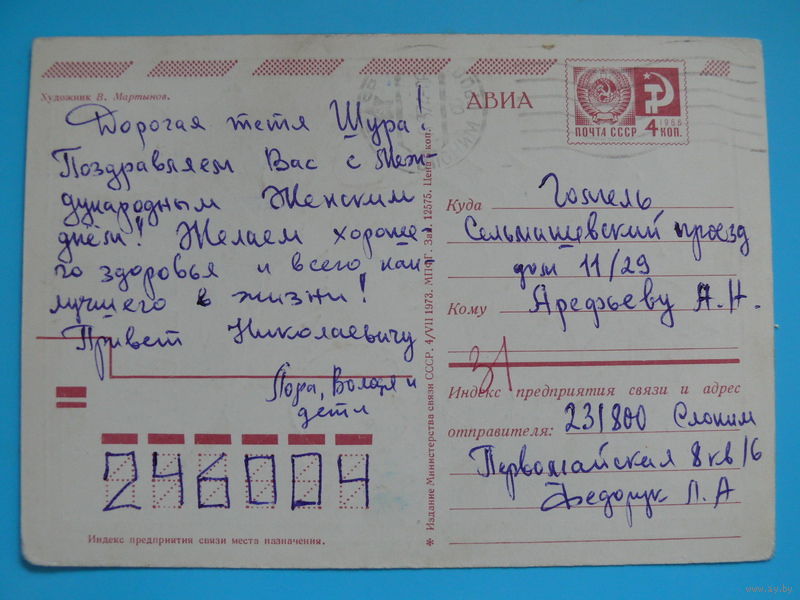 Художник В. Мартынов.
Дорогая тетя Шура!
Поздравляем Вас с Меж-
дународным Женским
днём! Желаем хороше-
го здоровья и всего най
лучшего в жизни!
Привет Николаевичу
Лора, Володя и
дети
246004
Индекс предприятия связи места назначения.
* Издание Министерства связи СССР. 4/VII 1973. МПФГ. Зак. 12575. Цена коп.
АВИА
ПОЧТА СССР 4 КОП.
1966
Куда Гомель
Сельмашевский проезд
дом 11/29
Кому Арефьеву А.Н.
31
Индекс предприятия связи и адрес
отправителя: 231800 Слоним
Первомайская 8 кв/6
Федорук Л.А
www.ay.by